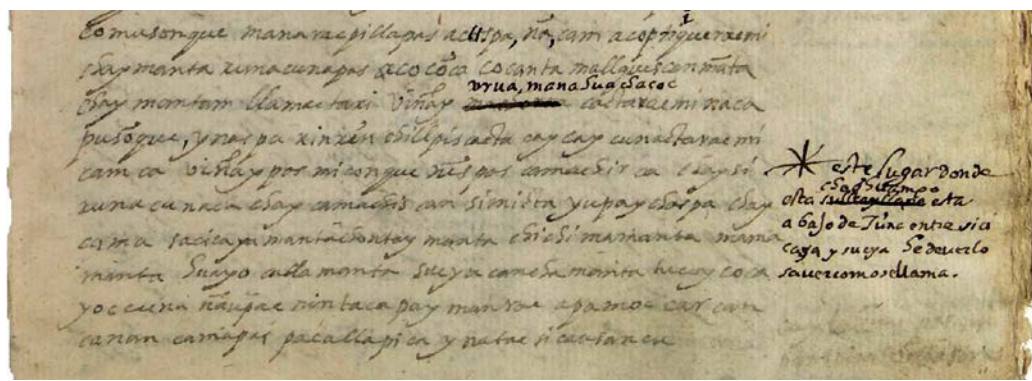 comusonque manarac pillapas acuspa, ña, cam acopti queracmi
chaymanta runacunapas aco coca cocanta mallquiscanmāta
chay mantam llamactari viñay
urua, mana huachacoc
cactaracmi naca
pusonque, ynaspa
cam ca viñaypas miconque ñispas camachir ca chaysi
runacunaca chay camachiscan simicta yupaycharpa chay
cama sacicaya manta chontay manta chichimamanta mama
manta huayo callamanta sucyacancha manta tucoy coca
yoc cuna ñaupac nintaca paymanrac apamoc carcan
canan camapas pacallapica ynatac sicausancu
este lugar donde
esta
esta
abajo de Tunc entre sici
caya y sucya he de ver lo
saver como se llama.